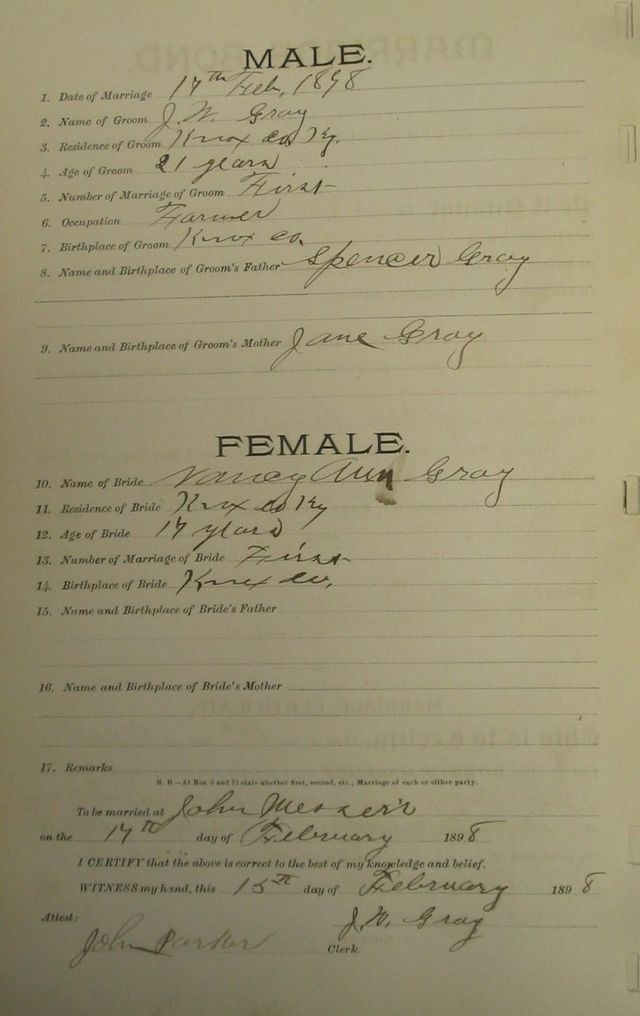 MALE.
1. Date of Marriage 17th Feb, 1898
2. Name of Groom J. W. Gray
3. Residence of Groom Knox co, Ky.
4. Age of Groom 21 years
5. Number of Marriage of Groom First
6. Occupation Farmer
7. Birthplace of Groom Knox co.
8. Name and Birthplace of Groom's Father Spencer Gray
9. Name and Birthplace of Groom's Mother Jane Gray
FEMALE.
10. Name of Bride Nancy Ann Gray
11. Residence of Bride Knox co Ky
12. Age of Bride 17 years
13. Number of Marriage of Bride First
14. Birthplace of Bride Knox Co,
15. Name and Birthplace of Bride's Father
16. Name and Birthplace of Bride's Mother
17. Remarks
N. B.—At Nos. 5 and 13 state whether first, second, etc., Marriage of each or either party.
To be married at John Messer's
on the 17th day of February 1898
I CERTIFY that the above is correct to the best of my knowledge and belief.
WITNESS my hand, this 15th day of February 1898
Attest: J. W. Gray
John Parker Clerk